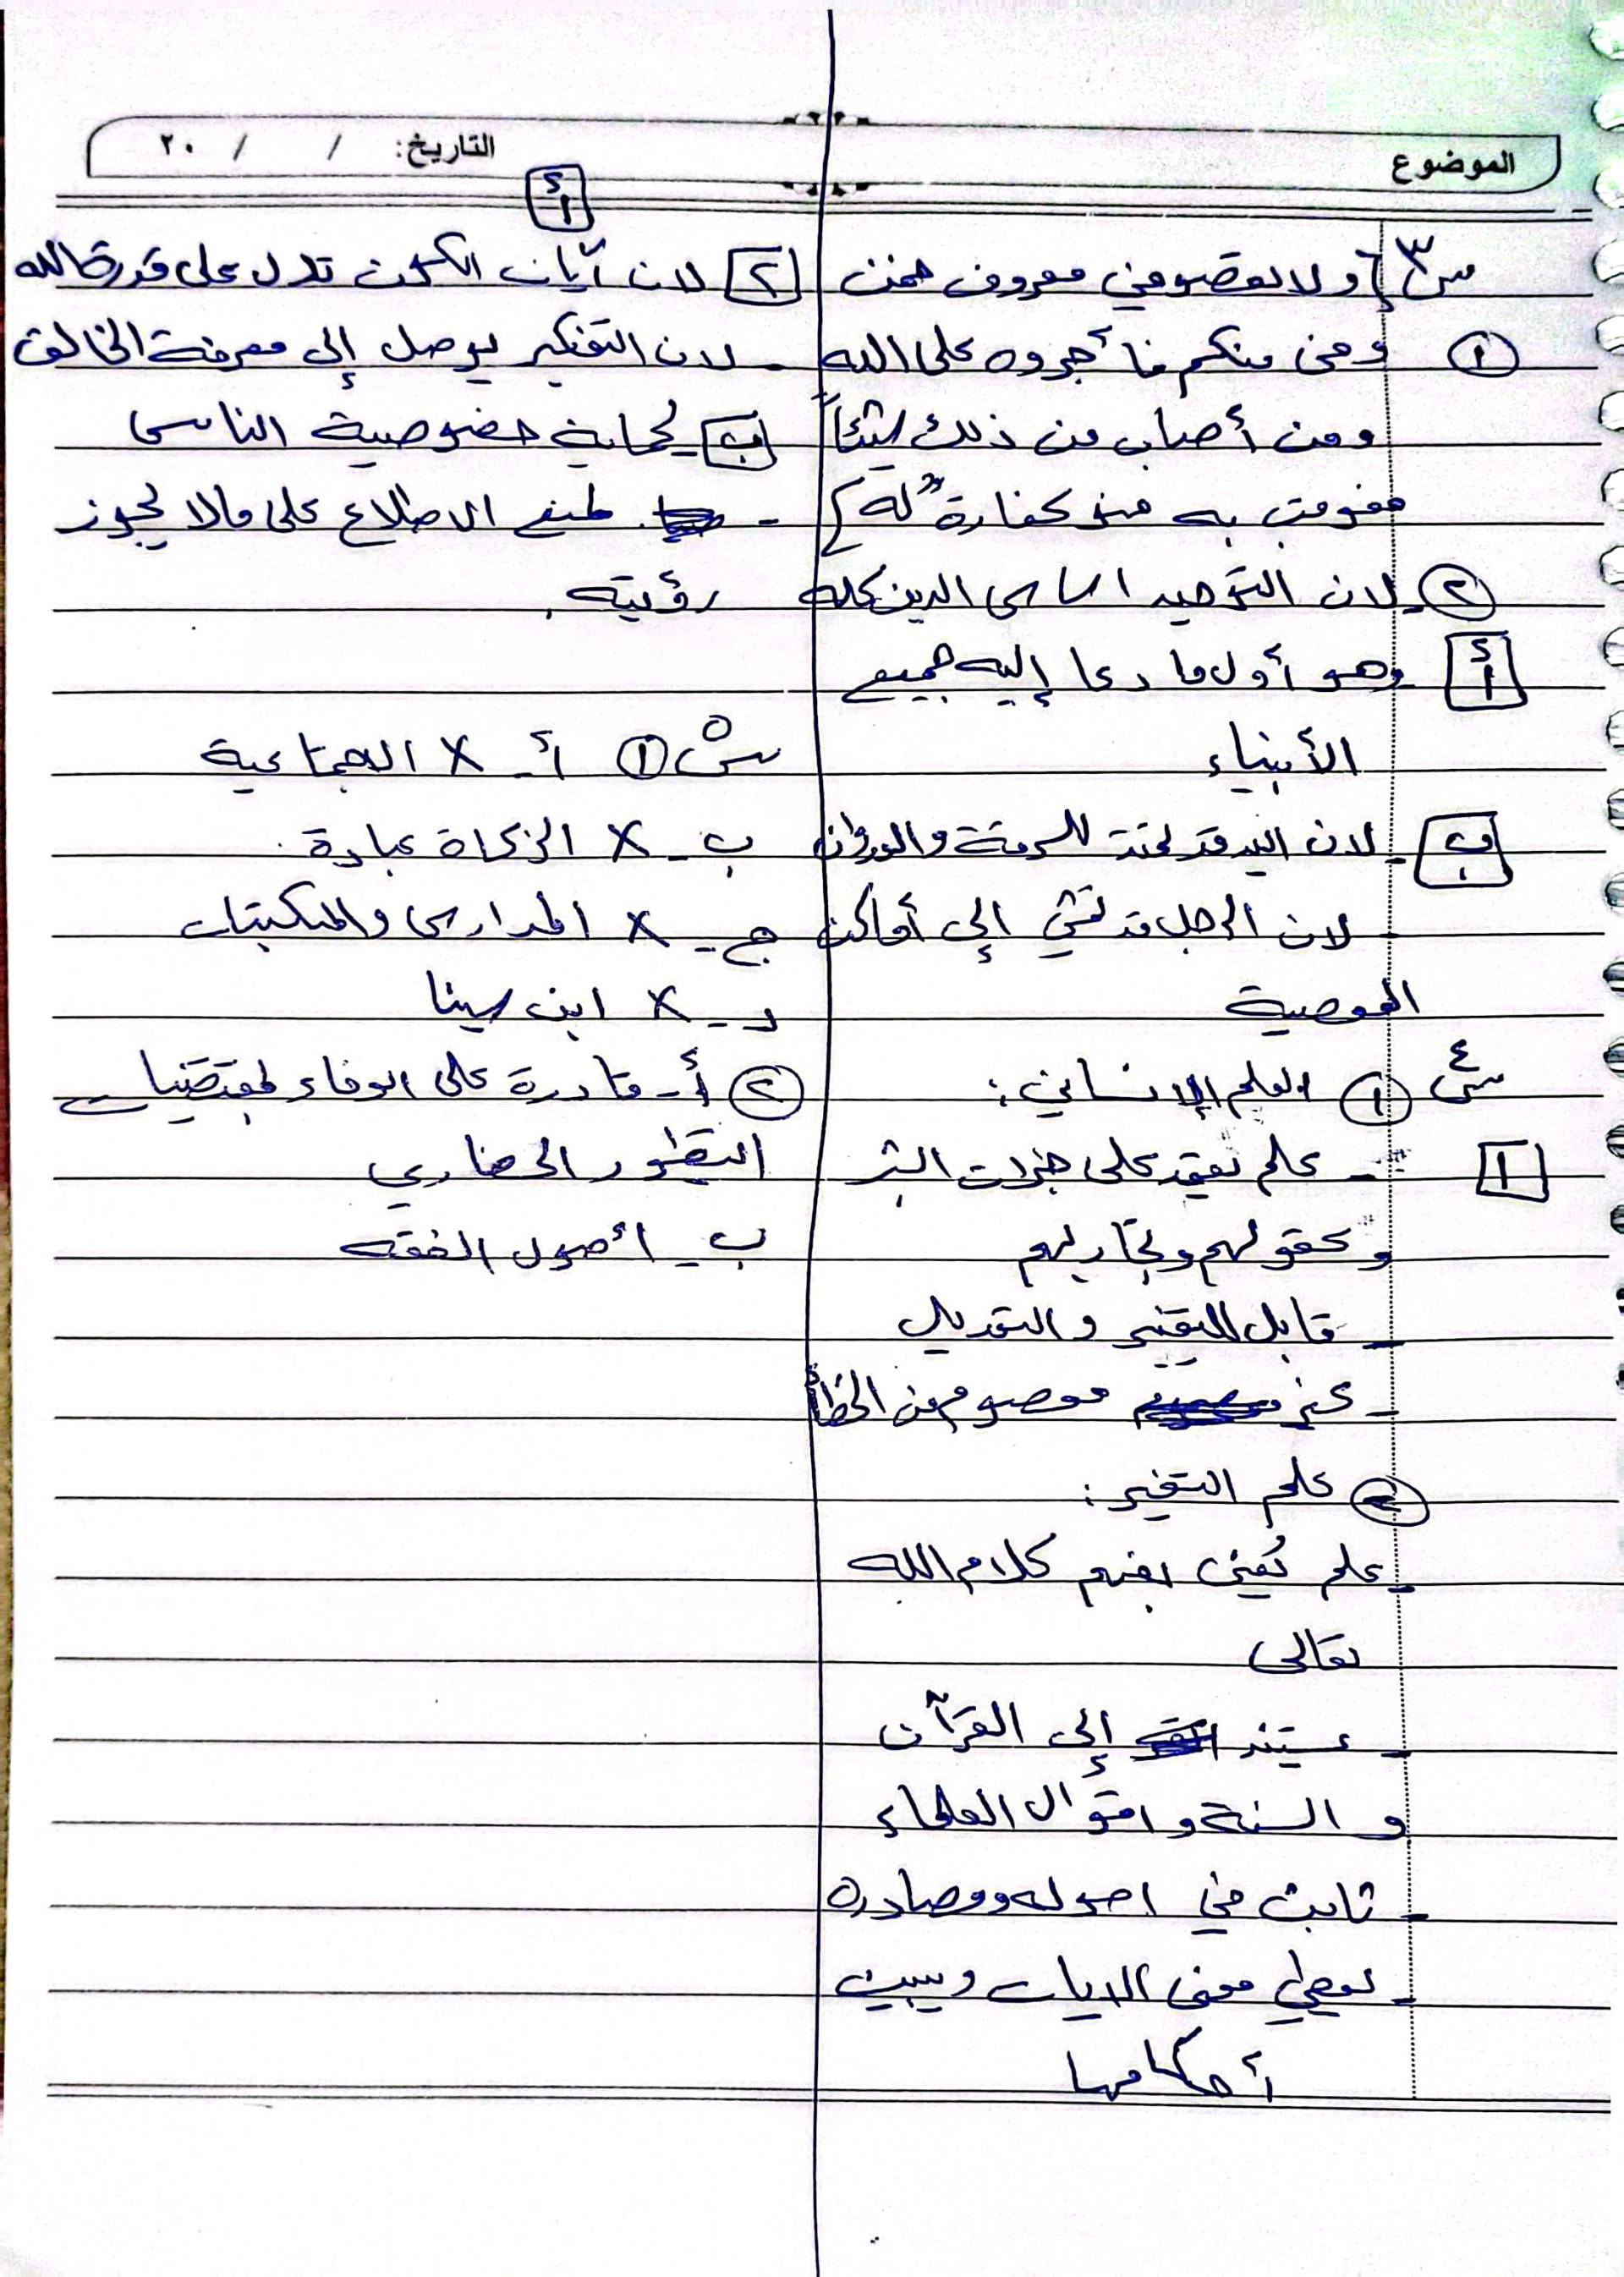 الموضوع
التاريخ: / / ٢٠
س٣ { ولا تعصوني في معروف فمن
① وفى منكم فأجره على الله
ومن أصاب من ذلك شيئاً
فعوقب به فهو كفارة له }
② - لان التوحيد اساس الدين كله
أ - وهو أول ما دعا إليه جميع
الأنبياء
ب - لان اليد قد تمتد للسرقة والعدوان
- لان الرجل قد تمشي إلى أماكن
المعصية
س٤ ① العلم الإنساني:
1 - علم يعتمد على خبرات البشر
وعقولهم وتجاربهم
- قابل للتغير والتعديل
- غير معصوم من الخطأ
② علم التفسير:
- علم يُعنى بفهم كلام الله
تعالى
- يستند إلى القرآن
والسنة واقوال العلماء
- ثابت في اصوله ومصادره
- يعطي معنى الايات ويبين
أحكامها
أ
2 لان آيات الكون تدل على قدرة الله
- لان التفكير يوصل إلى معرفة الخالق
ب لحماية خصوصية الناس
- لمنع الاطلاع على مالا يجوز
رؤيته.
س٥ ① أ - X الاجتماعية
ب - X الزكاة عبادة.
ج - X المدارس والمكتبات
د - X ابن سينا
② أ - قادرة على الوفاء لمقتضيات
التطور الحضاري
ب - أصول الفقه